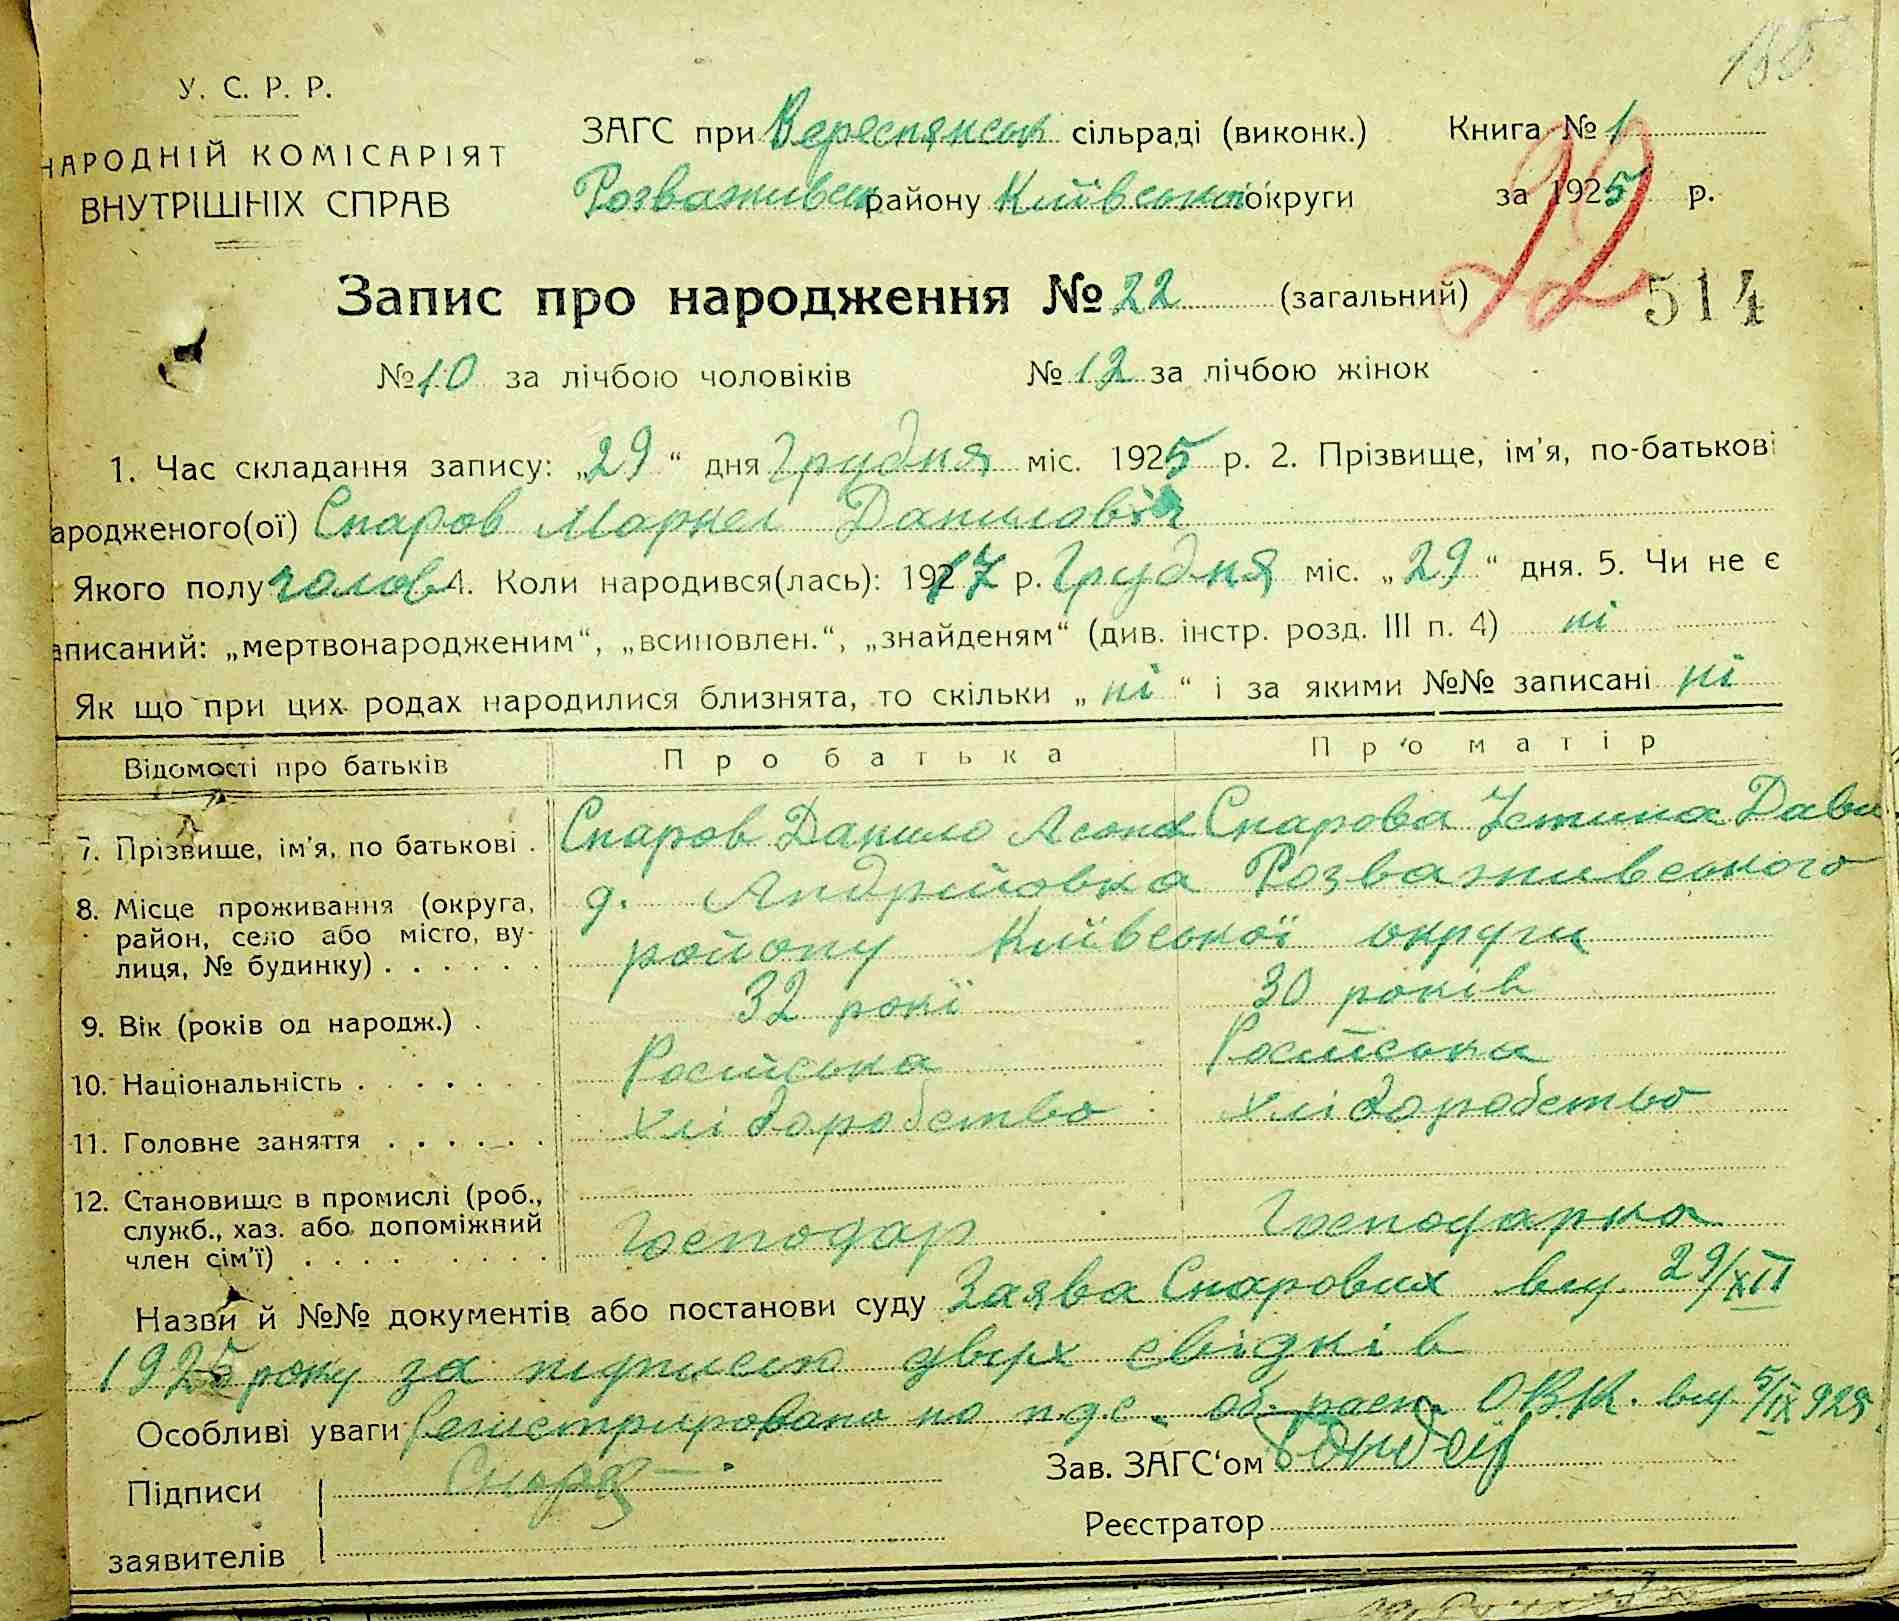 185
У. С. Р. Р.
НАРОДНІЙ КОМІСАРІЯТ
ВНУТРІШНІХ СПРАВ
ЗАГС при Вереснянськ сільраді (виконк.) Книга № 1
Розваживськ району Київської округи за 1925 р.
22
Запис про народження № 22 (загальний)
514
№ 10 за лічбою чоловіків № 12 за лічбою жінок
1. Час складання запису: „29“ дня Грудня міс. 1925 р. 2. Прізвище, ім'я, по-батькові
ародженого(ої) Спаров Маркел Данилович
Якого полу чолов 4. Коли народився(лась): 1917 р. Грудня міс. „29“ дня. 5. Чи не є
аписаний: „мертвонародженим“, „всиновлен.“, „знайденям“ (див. інстр. розд. III п. 4) ні
Як що при цих родах народилися близнята, то скільки „ні“ і за якими №№ записані ні
Відомості про батьків Про батька Про матір
7. Прізвище, ім'я, по батькові . Спаров Данило Спарова Устина Дави
8. Місце проживання (округа, район, село або місто, вулиця, № будинку) . . . . . . д. Андріївка Розваживського
району Київської округи
9. Вік (років од народж.) . 32 рокі 30 років
10. Національність . . . . . . . Російська Російська
11. Головне заняття . . . . . . Хліборобство Хліборобство
12. Становище в промислі (роб.,
служб., хаз. або допоміжний
член сім'ї) . . . . . . . . . Господар Господарка
Назви й №№ документів або постанови суду Заява Спарових від 29/XII
1925 року за підписею двух свідків
Особливі уваги Регистрировано по п.д.с. об. пост. ОВК. від 5/IX 925
Підписи Спаров Зав. ЗАГС'ом
Реєстратор
заявителів